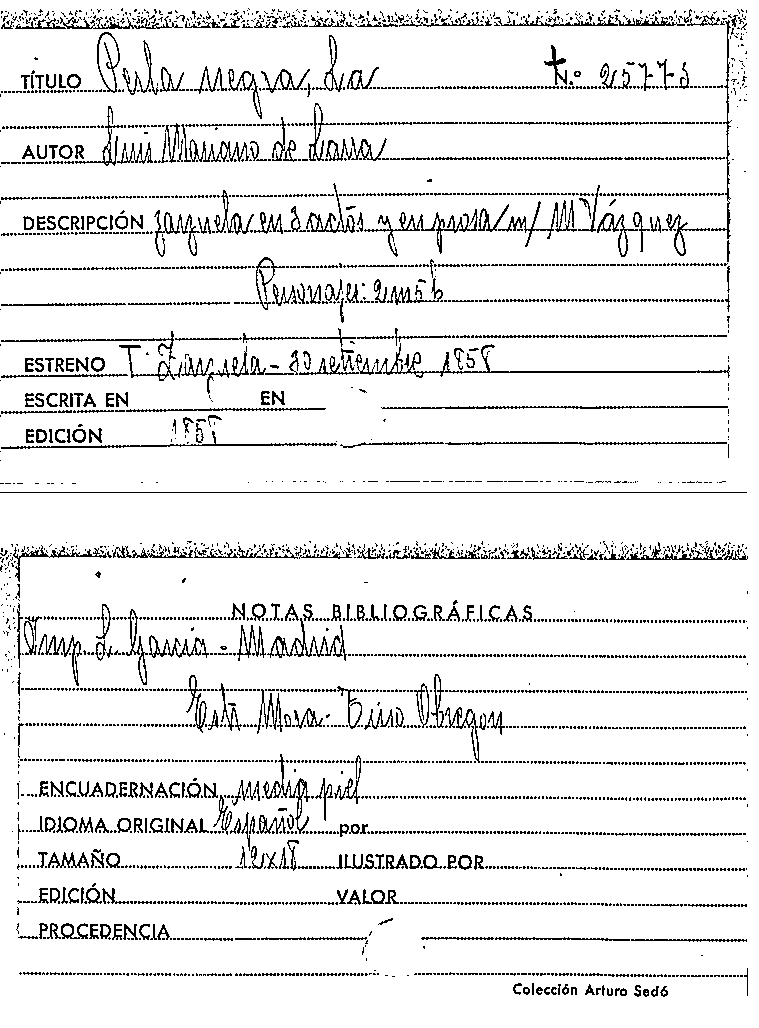 TÍTULO Perla negra, La N.º 25773
AUTOR Luis Mariano de Larra
DESCRIPCIÓN zarzuela en 3 actos y en prosa/m/ M Vázquez
Personajes: 2m5h
ESTRENO T. Zarzuela - 30 setiembre 1858
ESCRITA EN EN
EDICIÓN 1858
NOTAS BIBLIOGRÁFICAS
Imp L. Garcia - Madrid
Mora - Obregon
ENCUADERNACIÓN media piel
IDIOMA ORIGINAL Español por
TAMAÑO 12x18 ILUSTRADO POR
EDICIÓN VALOR
PROCEDENCIA
Colección Arturo Sedó